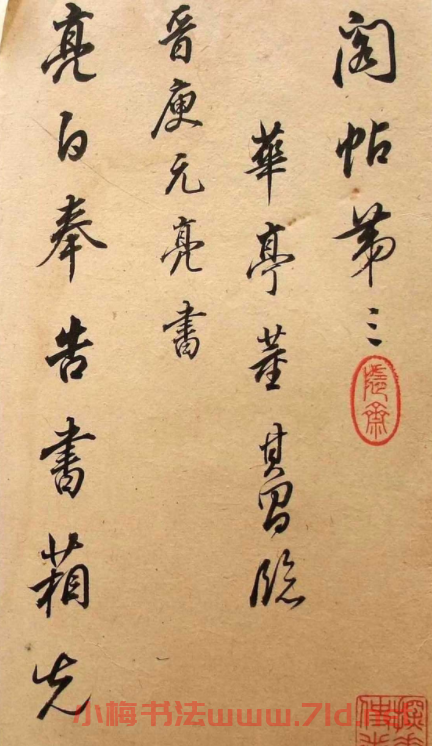 阁帖第三
華亭董其昌臨
晉庾元亮書
亮白奉告書箱先
小梅书法www.7ld